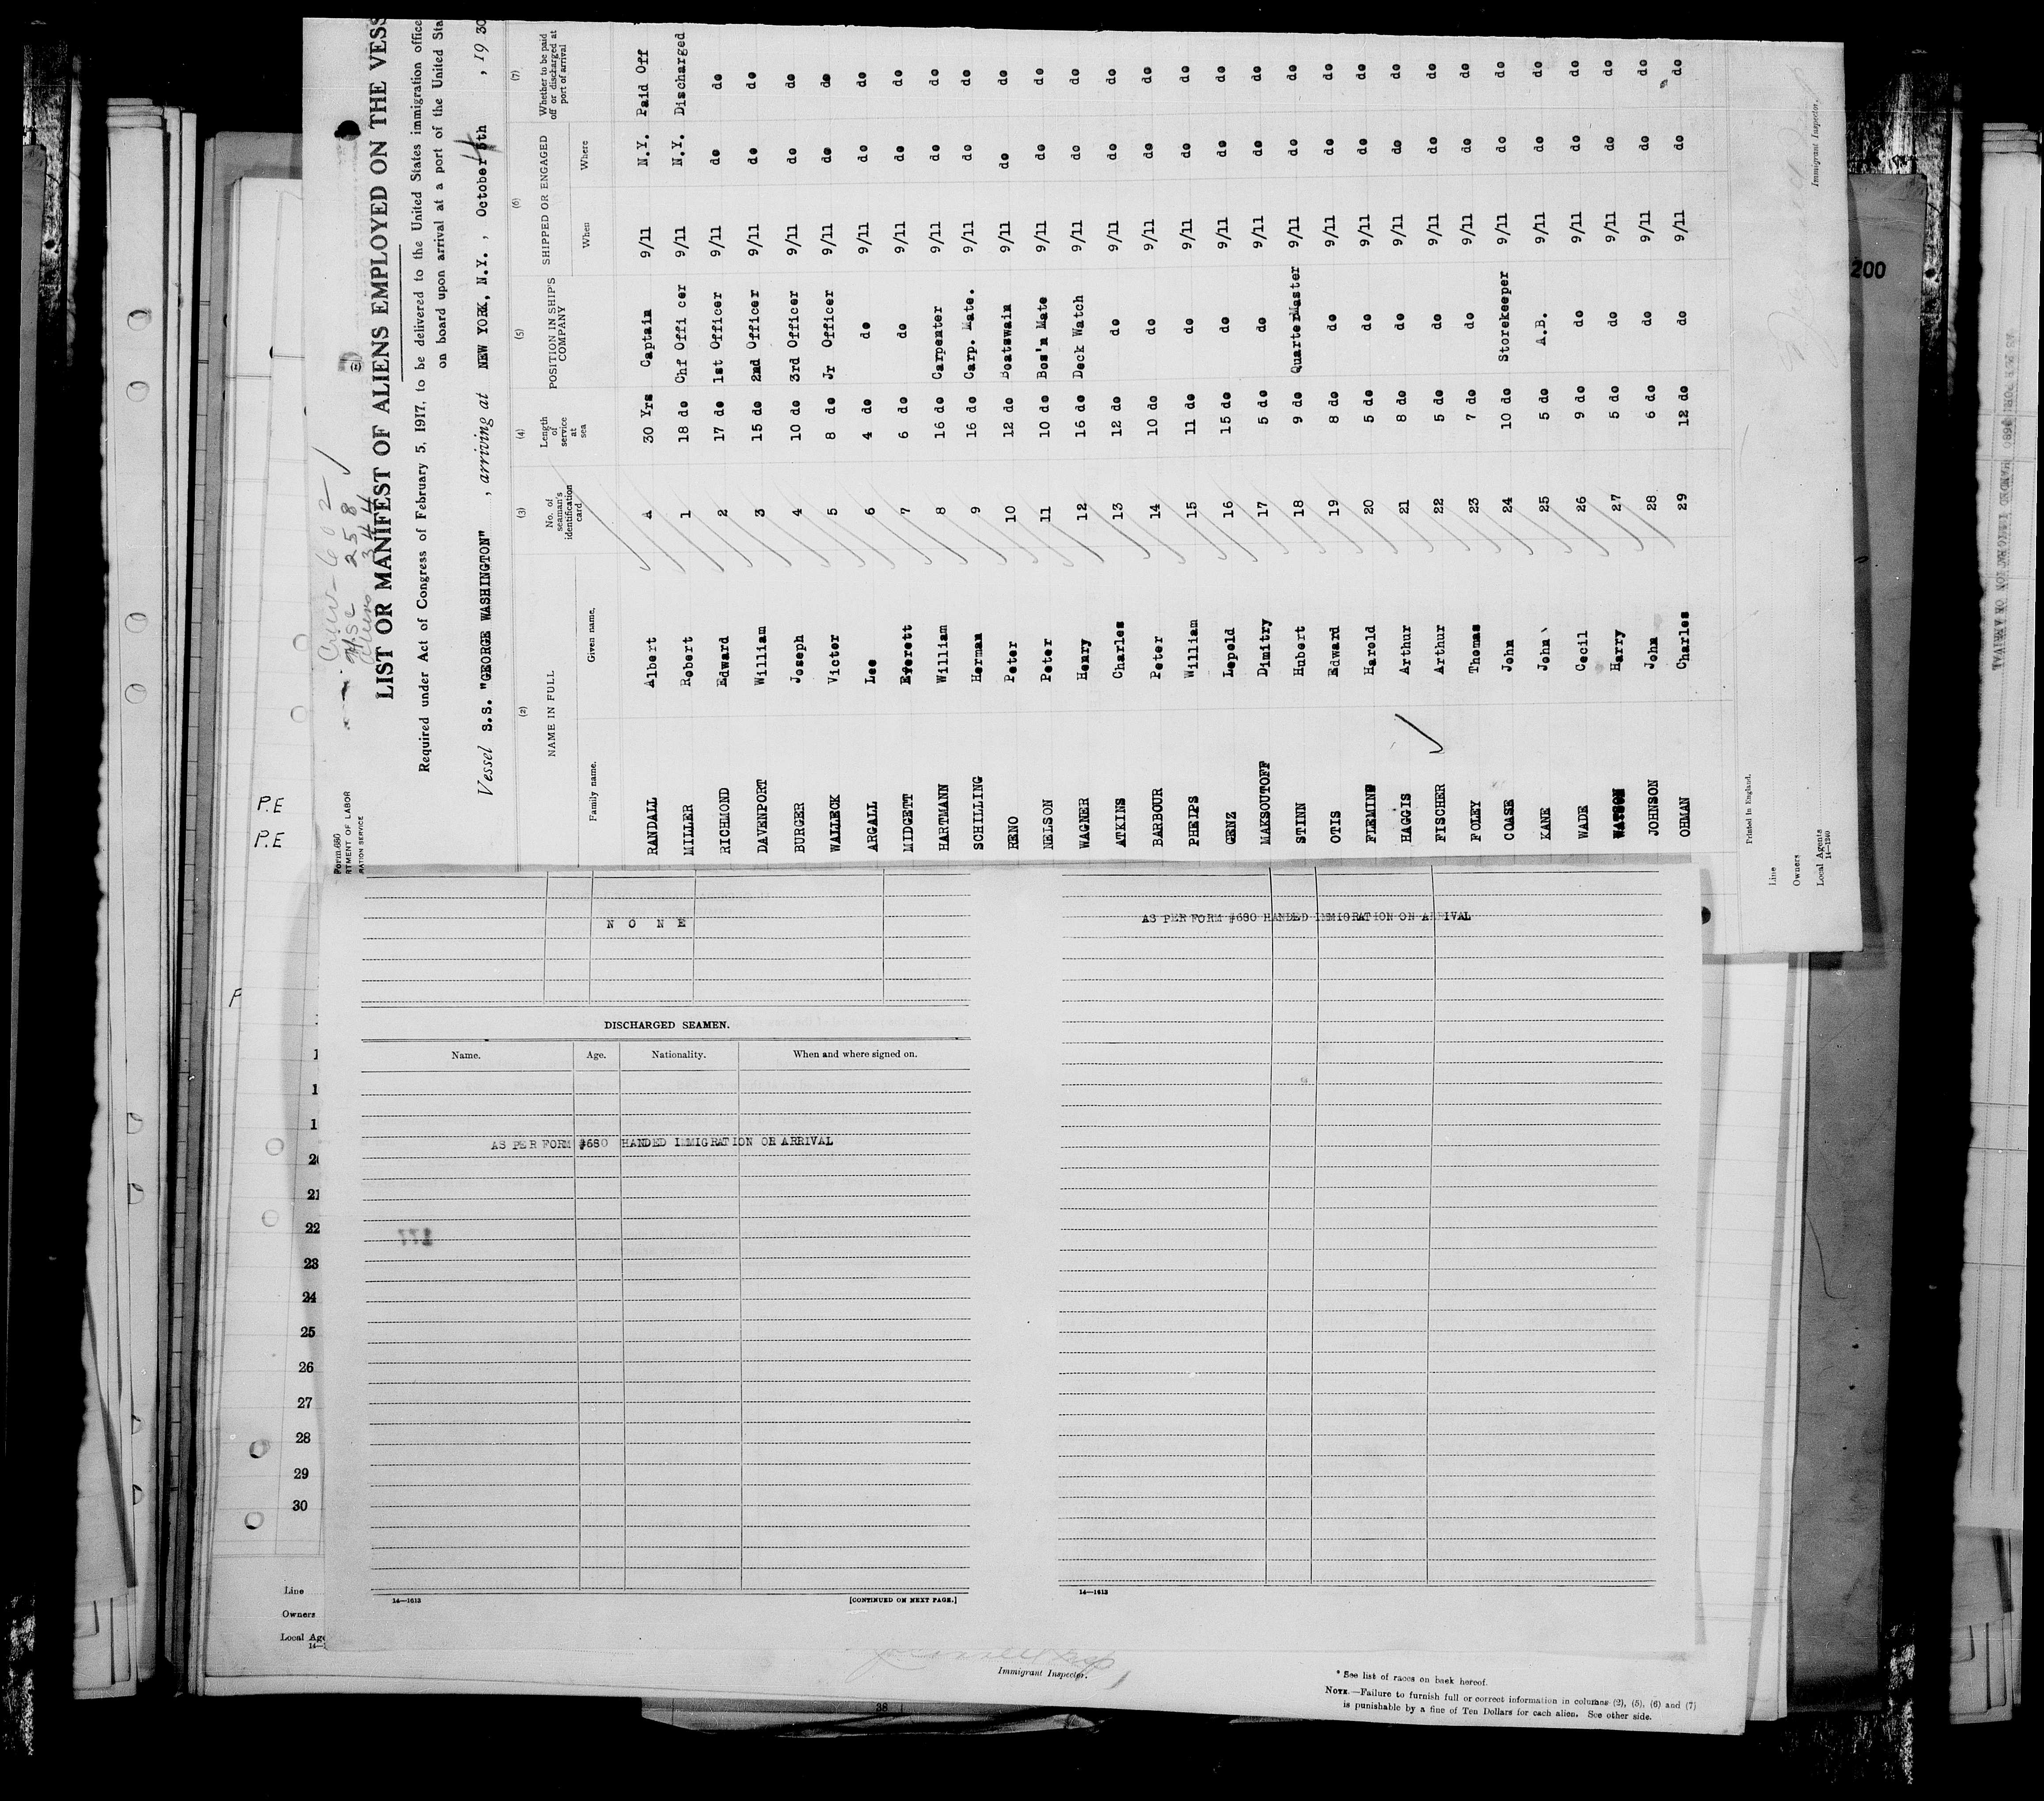 Form 680
LIST OR MANIFEST OF ALIENS EMPLOYED ON THE VESS
Required under Act of Congress of February 5, 1917, to be delivered to the United States immigration office
on board upon arrival at a port of the United Sta
Vessel S.S. "GEORGE WASHINGTON" , arriving at NEW YORK, N.Y. , October , 19 30
Crew - 602
U.S.C 258
Aliens 344
(2) (3) (4) (5) (6) (7)
NAME IN FULL No. of seaman's identification card Length of service at sea POSITION IN SHIP'S COMPANY SHIPPED OR ENGAGED Whether to be paid off or discharged at port of arrival
Family name. Given name. When Where
RANDALL Albert A 30 Yrs Captain 9/11 N.Y. Paid Off
MILLER Robert 1 18 do Chf Officer 9/11 N.Y. Discharged
RICHMOND Edward 2 17 do 1st Officer 9/11 do do
DAVENPORT William 3 15 do 2nd Officer 9/11 do do
BURGER Joseph 4 10 do 3rd Officer 9/11 do do
WALLECK Victor 5 8 do Jr Officer 9/11 do do
ARGALL Lee 6 4 do do 9/11 do do
MIDGETT Everett 7 6 do do 9/11 do do
HARTMANN William 8 16 do Carpenter 9/11 do do
SCHILLING Herman 9 16 do Carp. Mate. 9/11 do do
RENO Peter 10 12 do Boatswain 9/11 do do
NELSON Peter 11 10 do Bos'n Mate 9/11 do do
WAGNER Henry 12 16 do Deck Watch 9/11 do do
ATKINS Charles 13 12 do do 9/11 do do
BARBOUR Peter 14 10 do do 9/11 do do
PHEIPS William 15 11 do do 9/11 do do
GENZ Lepold 16 15 do do 9/11 do do
MAKSOUTOFF Dimitry 17 5 do do 9/11 do do
STINN Hubert 18 9 do QuarterMaster 9/11 do do
OTIS Edward 19 8 do do 9/11 do do
FLEMING Harold 20 5 do do 9/11 do do
HAGGIS Arthur 21 8 do do 9/11 do do
FISCHER Arthur 22 5 do do 9/11 do do
FOLEY Thomas 23 7 do do 9/11 do do
COASE John 24 10 do Storekeeper 9/11 do do
KANE John 25 5 do A.B. 9/11 do do
WADE Cecil 26 9 do do 9/11 do do
WATSON Harry 27 5 do do 9/11 do do
JOHNSON John 28 6 do do 9/11 do do
OHMAN Charles 29 12 do do 9/11 do do
Printed in England.
Line
Owners
Local Agents
14—1240
Immigrant Inspector.
200
P.E
P.E
P
N O N E
DISCHARGED SEAMEN.
Name. Age. Nationality. When and where signed on.
AS PER FORM #680 HANDED IMMIGRATION ON ARRIVAL
14—1613 [CONTINUED ON NEXT PAGE.]
AS PER FORM #680 HANDED IMMIGRATION ON ARRIVAL
14—1613
21
22
23
24
25
26
27
28
29
30
Line
Owners
Local Age
Immigrant Inspector.
* See list of races on back hereof.
NOTE.—Failure to furnish full or correct information in columns (2), (5), (6) and (7)
is punishable by a fine of Ten Dollars for each alien. See other side.
38